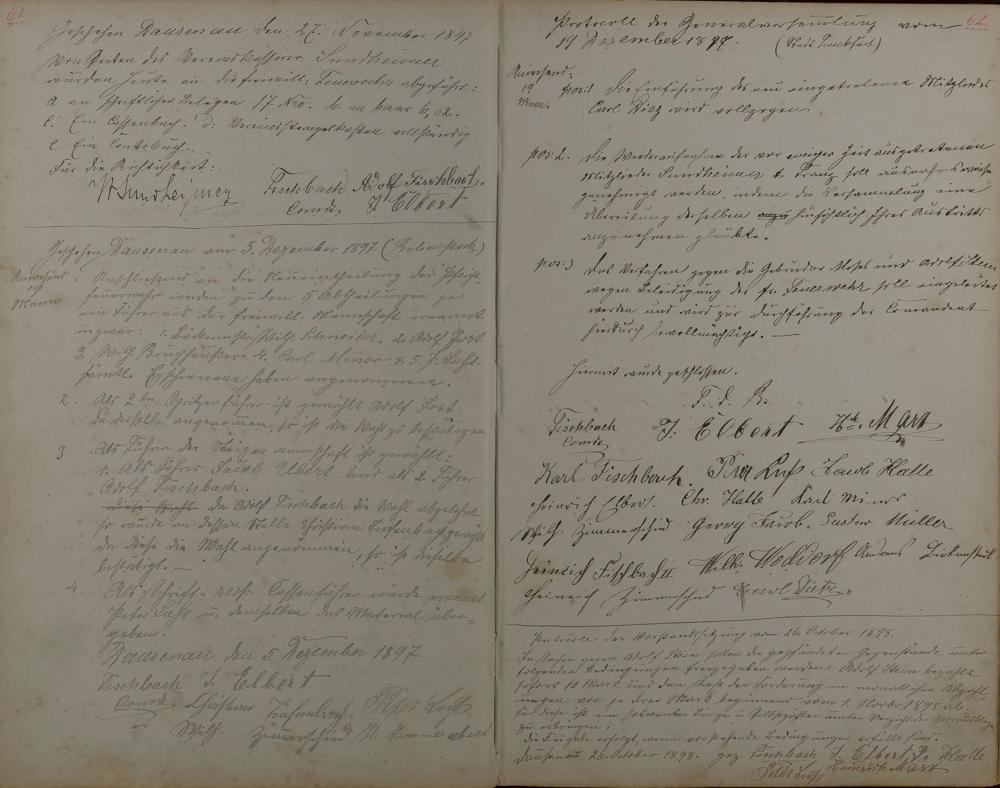 61
Geschehen Dausenau den 27. November 1897
Von Seiten des Vereinskassirer Sundheimer
wurden heute an die freiwill. Feuerwehr abgeführt:
a an schriftlichen Belegen 17 Nro. b. an baar 6,02.
c. Ein Cassenbuch. d: Vereinsstempelkasten vollständig
e Ein Contobuch.
Für die Richtigkeit:
W Sundheimer Fischbach Adolf Fischbach.
Comdt J Elbert
Geschehen Dausenau am 5. Dezember 1897
Anwesend
19
Mann
Anschließend an die Neueintheilung der Pflicht-
feuerwehr werden zu den 5 Abtheilungen je
ein Führer aus der freiwill. Mannschaft ernannt
und zwar: 1. Wilh. Schneider. 2. Adolf Jost
3. Wilh. Bruchhäuser 4. Carl Minor & 5. J.
sämtl. Erschienene haben angenommen.
2. Als 2ter Spritzenführer ist gewählt Adolf Jost.
da derselbe angenommen, so ist die Wahl zu bestätigen
3 Als Führer der Steiger mannschaft ist gewählt:
1. Als Führer Jacob Elbert und als 2. Führer
Adolf Fischbach.
diese Wahl da Adolf Fischbach die Wahl abgelehnt
so wurde an dessen Stelle Christian Tiefenbach gewählt
da diese die Wahl angenommen, so ist dieselbe
bestätigt. —
4. Als Schrift- resp. Cassenführer wurde ernannt
Peter Luss u. demselben das Material über=
geben.
Dausenau den 5. Dezember 1897
Fischbach J. Elbert
Comdt Christian Tiefenbach. Peter Luss
Wilh. Zimmerschied
62.
Protocoll der Generalversammlung vom
19 Dezember 1897. (Stadt Frankfurt)
Anwesend:
19
Mann.
pos: 1 Die Einführung des neu eingetretenen Mitgliedes
Carl wird vollzogen.
pos: 2. Die Wiederaufnahme der vor einiger Zeit ausgetretenen
Mitglieder Sundheimer & Franz soll ausnahmsweise
genehmigt werden, indem die Versammlung eine
Übereilung derselben hinsichtlich Ihres Austritts
anzunehmen glaubte.
pos: 3 Das Verfahren gegen die Gebrüder Moses und Adolf Stein
wegen Beleidigung der fr. Feuerwehr soll eingeleitet
werden und wird zur Durchführung der Comandant
hierdurch bevollmächtigt. —
Hiermit wurde geschlossen.
Fischbach J. Elbert Hch. Marx
Comdt
Karl Fischbach. Peter Luss Jacob Halle
Heinrich Elbert. Chr. Halle Karl Minor
Wilh. Zimmerschied Georg Jacob. Gustav Müller
Heinrich Fischbach II Wilh. Wodidorf Andreas
Heinrich Zimmerschied
Protocoll der Vorstandssitzung vom 26. October 1898.
In Sachen gegen Adolf Stein sollen die gepfändeten Gegenstände unter
folgenden Bedingungen freigegeben werden: Adolf Stein bezahlt
sofort 10 Mark und den Rest der Forderung in monatlichen Abzahl
ungen von je drei Mark beginnend vom 1. Novbr. 1898 ab.
für diese ist ein solventer Bürge u. Selbstzahler unter Verzicht der
zu erbringen.
die Freigabe erfolgt, wenn vorstehende Bedingungen erfüllt sind.
Dausenau 26. October 1898. gez. Fischbach J. Elbert J. Halle
Peter Luss Heinrich Marx